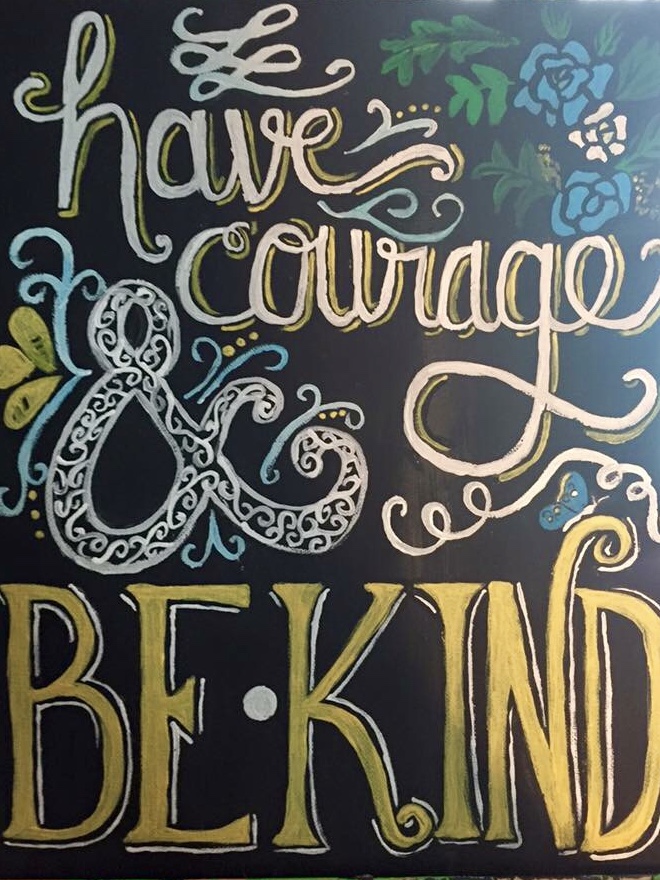 have
courage
&
BE•KIND